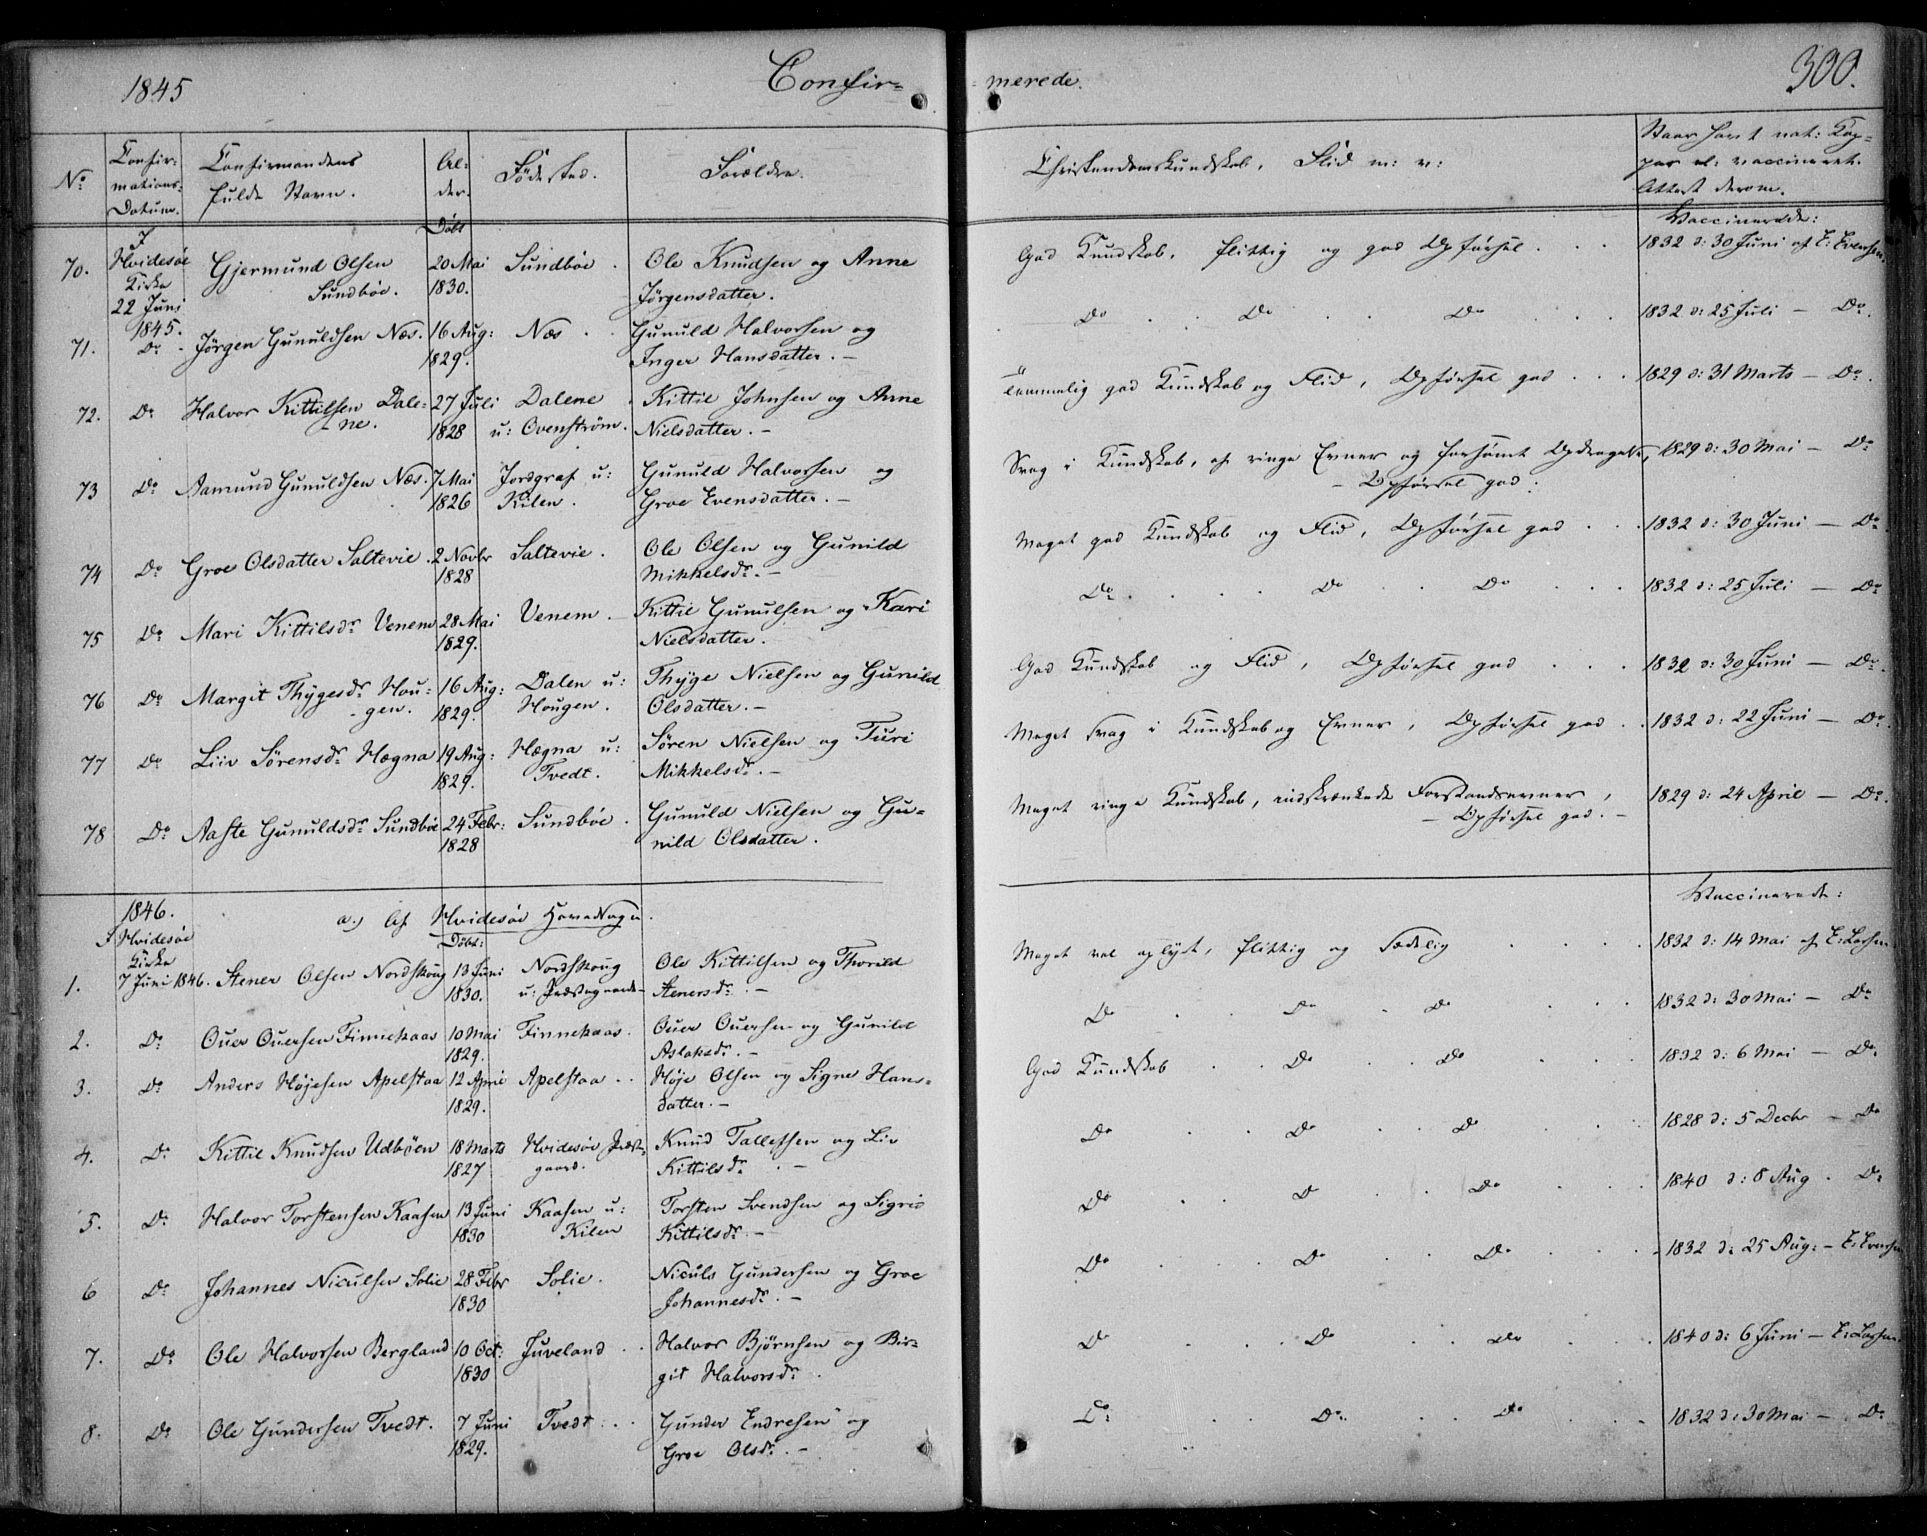 1845 Confir= merede. 300.
No Confirmations-Datum. Confirmandens fulde Navn. Al-der. Födested. Forældre. Christendomskundskab, Flid m: v: Naar havt nat: Kop-per el: vaccineret. Attest derom.
Döbt Vaccinerede:
70. I Hvidesöe Kirke 22 Juni 1845. Gjermund Olsen Sundböe. 20 Mai 1830. Sundböe. Ole Knudsen og Anne Jörgensdatter. God Kundskab, flittig og god Opförsel . . . 1832 d: 30 Juni af E: Evensen.
71. Do Jörgen Gunuldsen Næs. 16 Aug: 1829. Næs . . Gunuld Halvorsen og Inger Hansdatter. — Do . . Do . . Do . . . 1832 d: 25 Juli — Do.
72. Do Halvor Kittilsen Dale=ne. 27 Juli 1828 Dalene u: Ovenström. Kittil Johnsen og Anne Nielsdatter. — Temmelig god Kundskab og Flid, Opförsel god . . . 1829 d: 31 Marts — Do.
73 Do Aamund Gunuldsen Næs. 7 Mai 1826 Jordgraf u: Kilen. Gunuld Halvorsen og Groe Evensdatter. — Svag i Kundskab, af ringe Evner og forsömt Opdragelse, — Opförsel god. 1829 d: 30 Mai — Do
74 Do Groe Olsdatter Saltevie. 2 Novbr 1828 Saltevie. Ole Olsen og Gunild Mikkelsdr. — Meget god Kundskab og Flid, Opförsel god . . . 1832 d: 30 Juni — Do
75 Do Mari Kittilsdr Venem 28 Mai 1829. Venem. Kittil Gunulsen og Kari Nielsdatter. Do . . . Do . . Do . . 1832 d: 25 Juli — Do
76 Do Margit Thygesdr Hou=gen. 16 Aug: 1829. Dalen u: Hougen. Thyge Nielsen og Gunild Olsdatter. — God Kundskab og Flid, Opförsel god . . . 1832 d: 30 Juni — Do.
77 Do Liiv Sörensdr Hægna 19 Aug: 1829. Hægna u: Tvedt. Sören Nielsen og Turi Mikkelsdr. — Meget svag i Kundskab og Evner, Opförsel god . . 1832 d: 22 Juni — Do.
78 Do Aaste Gunuldsdr Sundböe 24 Febr: 1828 Sundböe. Gunuld Nielsen og Gu=nild Olsdatter. Meget ringe Kundskab, indskrænkede Forstandsevner, — Opförsel god. — 1829 d: 24 April — Do.
1846. a.) Af Hvidesöe Hovedsogn. Vaccinerede:
Döbt:
1. I Hvidesöe Kirke 7 Juni 1846. Stener Olsen Nordskoug 13 Juni 1830. Nordskoug u: Præstegaard= Ole Kittilsen og Thorild Stenersdr. — Meget vel oplyst, flittig og sædelig . . . . 1832 d: 14 Mai af E: Larsen
2. Do Ouer Ouersen Finnekaas 10 Mai 1829. Finnekaas. Ouer Ouersen og Gunild Aslaksdr. — Do . . Do . Do . . . 1832 d: 30 Mai — Do
3. Do Anders Höjesen Apelstaa 12 April 1829. Apelstaa . . Höje Olsen og Signe Hans=datter. — God Kundskab . Do . . Do . . . 1832 d: 6 Mai — Do.
4. Do Kittil Knudsen Udböen 18 Marts 1827 Hvidesöe Præste=gaard. Knud Tallefsen og Liv Kittilsdr. — Do . . Do . . Do . . . 1828 d: 5 Decbr — Do
5. Do Halvor Torstensen Kaasen 13 Juni 1830 Kaasen u: Kilen Torsten Svendsen og Sigrid Kittilsdr. — Do . . Do . . Do . . . 1840 d: 8 Aug. Do
6 Do Johannes Niculsen Solie 28 Febr 1830 Solie. Niculs Gundersen og Groe Johannesdr. — Do . . Do . . Do . . . 1832 d: 25 Aug: — E: Evensen
7. Do Ole Halvorsen Bergland 10 Oct: 1830 Juveland . . Halvor Björnsen og Bir=git Halvorsdr. Do . . Do . . Do . . . 1840 d: 6 Juni — E: Larsen
8. Do Ole Gundersen Tvedt. 7 Juni 1829. Tvedt . . Gunder Endresen og Groe Olsdr. — Do . . Do . . Do . . . 1832 d: 30 Mai — Do